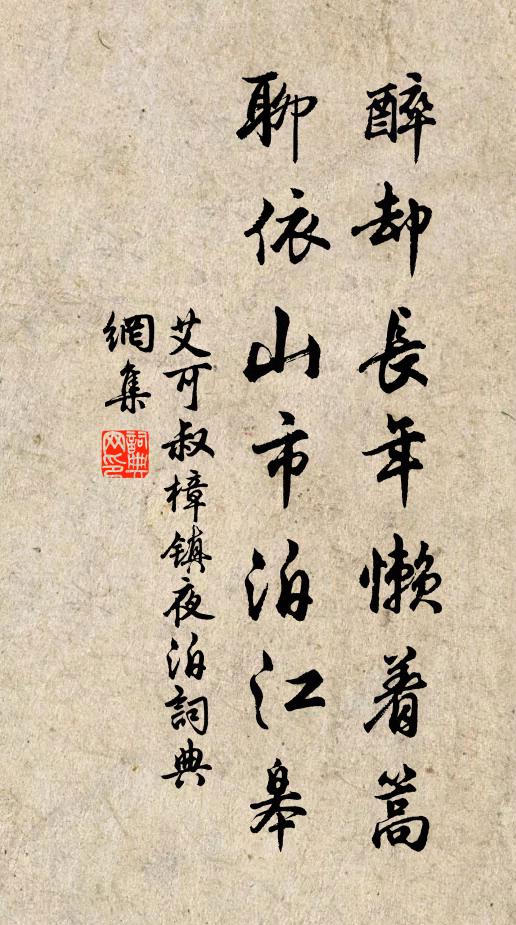 醉却長年懶着篙
聊依山市泊江皋
艾可叔樟镇夜泊詞典
網集
詞典網印